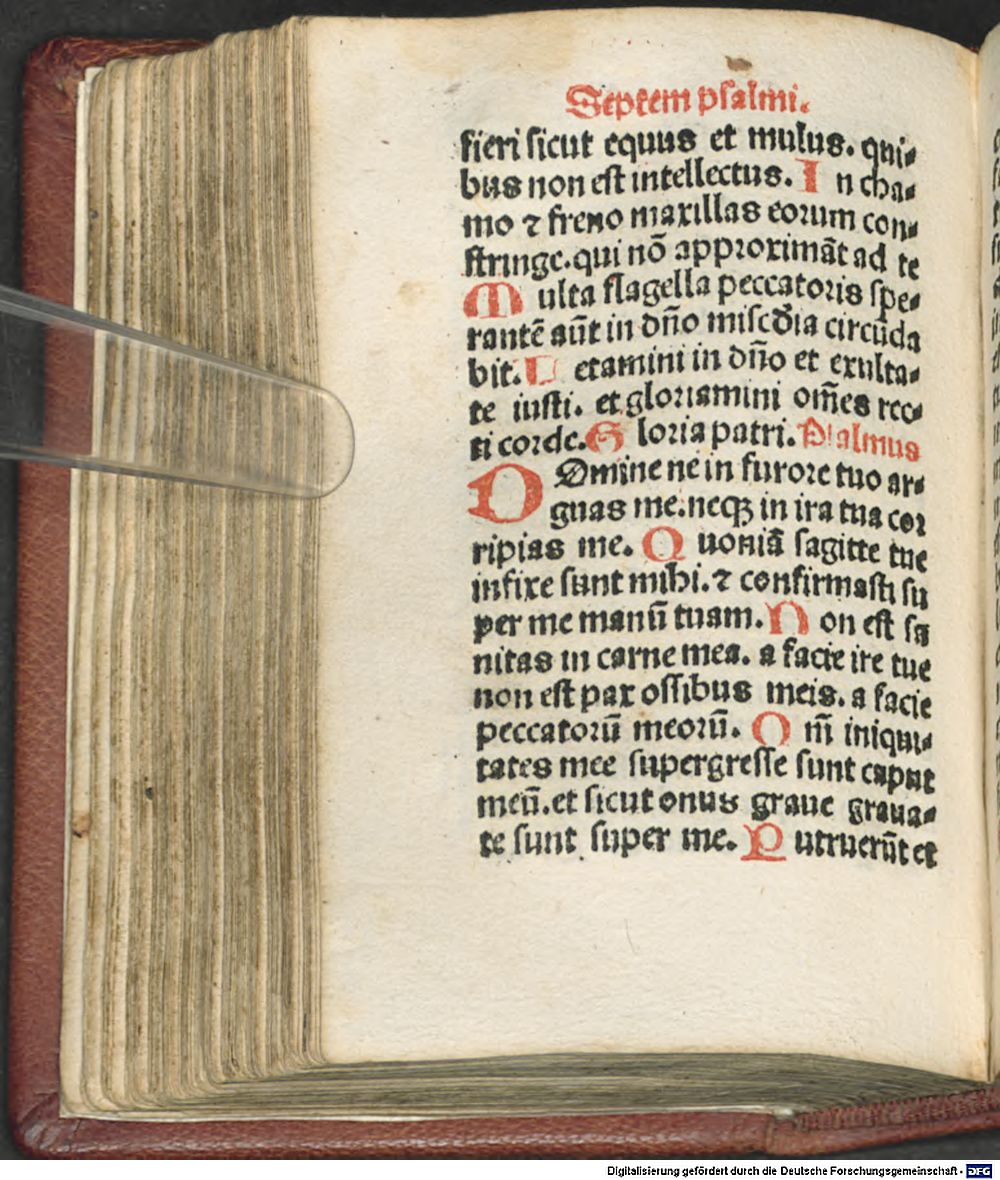 Septem psalmi.
fieri sicut equus et mulus. qui⸗
bus non est intellectus. In cha⸗
mo ⁊ freno maxillas eorum con⸗
stringe. qui nō approximāt ad te
Multa flagella peccatoris spe⸗
rantē aūt in dño miscd̄ia circūda
bit. Letamini in dño et exulta⸗
te iusti. et gloriamini om̄es rec⸗
ti corde. Gloria patri. Psalmus
DOmine ne in furore tuo ar⸗
guas me. neqꝫ in ira tua cor
ripias me. Quoniā sagitte tue
infixe sunt mihi. ⁊ confirmasti su
per me manū tuam. Non est sa
nitas in carne mea. a facie ire tue
non est pax ossibus meis. a facie
peccatorū meorū. Om̄ iniqui⸗
tates mee supergresse sunt caput
meū. et sicut onus graue graua⸗
te sunt super me. Putruerūt et
Digitalisierung gefördert durch die Deutsche Forschungsgemeinschaft - DFG